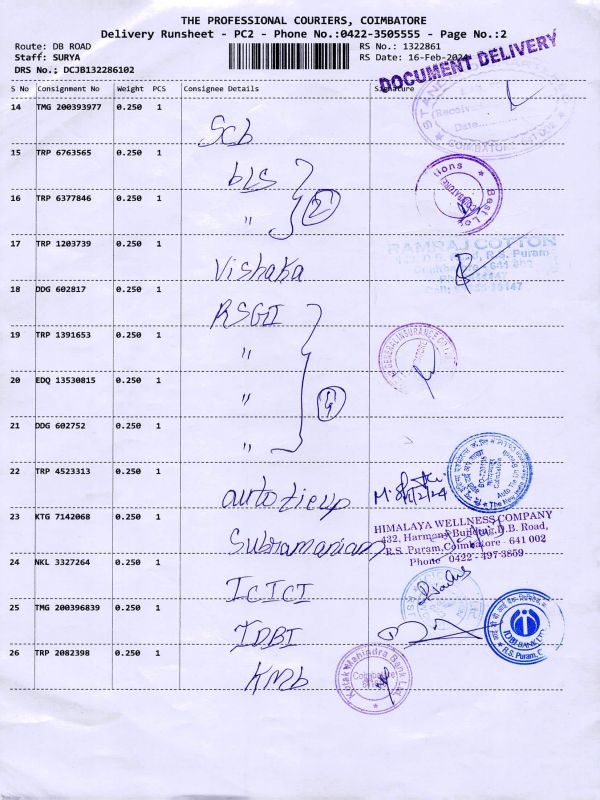 THE PROFESSIONAL COURIERS, COIMBATORE
Delivery Runsheet - PC2 - Phone No.:0422-3505555 - Page No.:2
Route: DB ROAD
Staff: SURYA
DRS No.; DCJB132286102
RS No.: 1322861
RS Date: 16-Feb-2024
DOCUMENT DELIVERY
S No Consignment No Weight PCS Consignee Details Signature
14 TMG 200393977 0.250 1
Scb
15 TRP 6763565 0.250 1
bLS
16 TRP 6377846 0.250 1
" 2
17 TRP 1203739 0.250 1
RAMRAJ COTTON
R.S. Puram
Vishaka
18 DDG 602817 0.250 1
RSGI
19 TRP 1391653 0.250 1
"
GENERAL INSURANCE
20 EDQ 13530815 0.250 1
" 4
21 DDG 602752 0.250 1
"
22 TRP 4523313 0.250 1
auto tieup
Coimbatore
Auto Tie Up
23 KTG 7142068 0.250 1
HIMALAYA WELLNESS COMPANY
432, Harmony Building, D.B. Road,
R.S. Puram, Coimbatore - 641 002
Phone 0422 - 497 3859
Subramaniam
24 NKL 3327264 0.250 1
ICICI
25 TMG 200396839 0.250 1
IDBI
IDBI BANK
R.S. Puram,
26 TRP 2082398 0.250 1
KMb
Kotak Mahindra Bank Ltd
Coimbatore